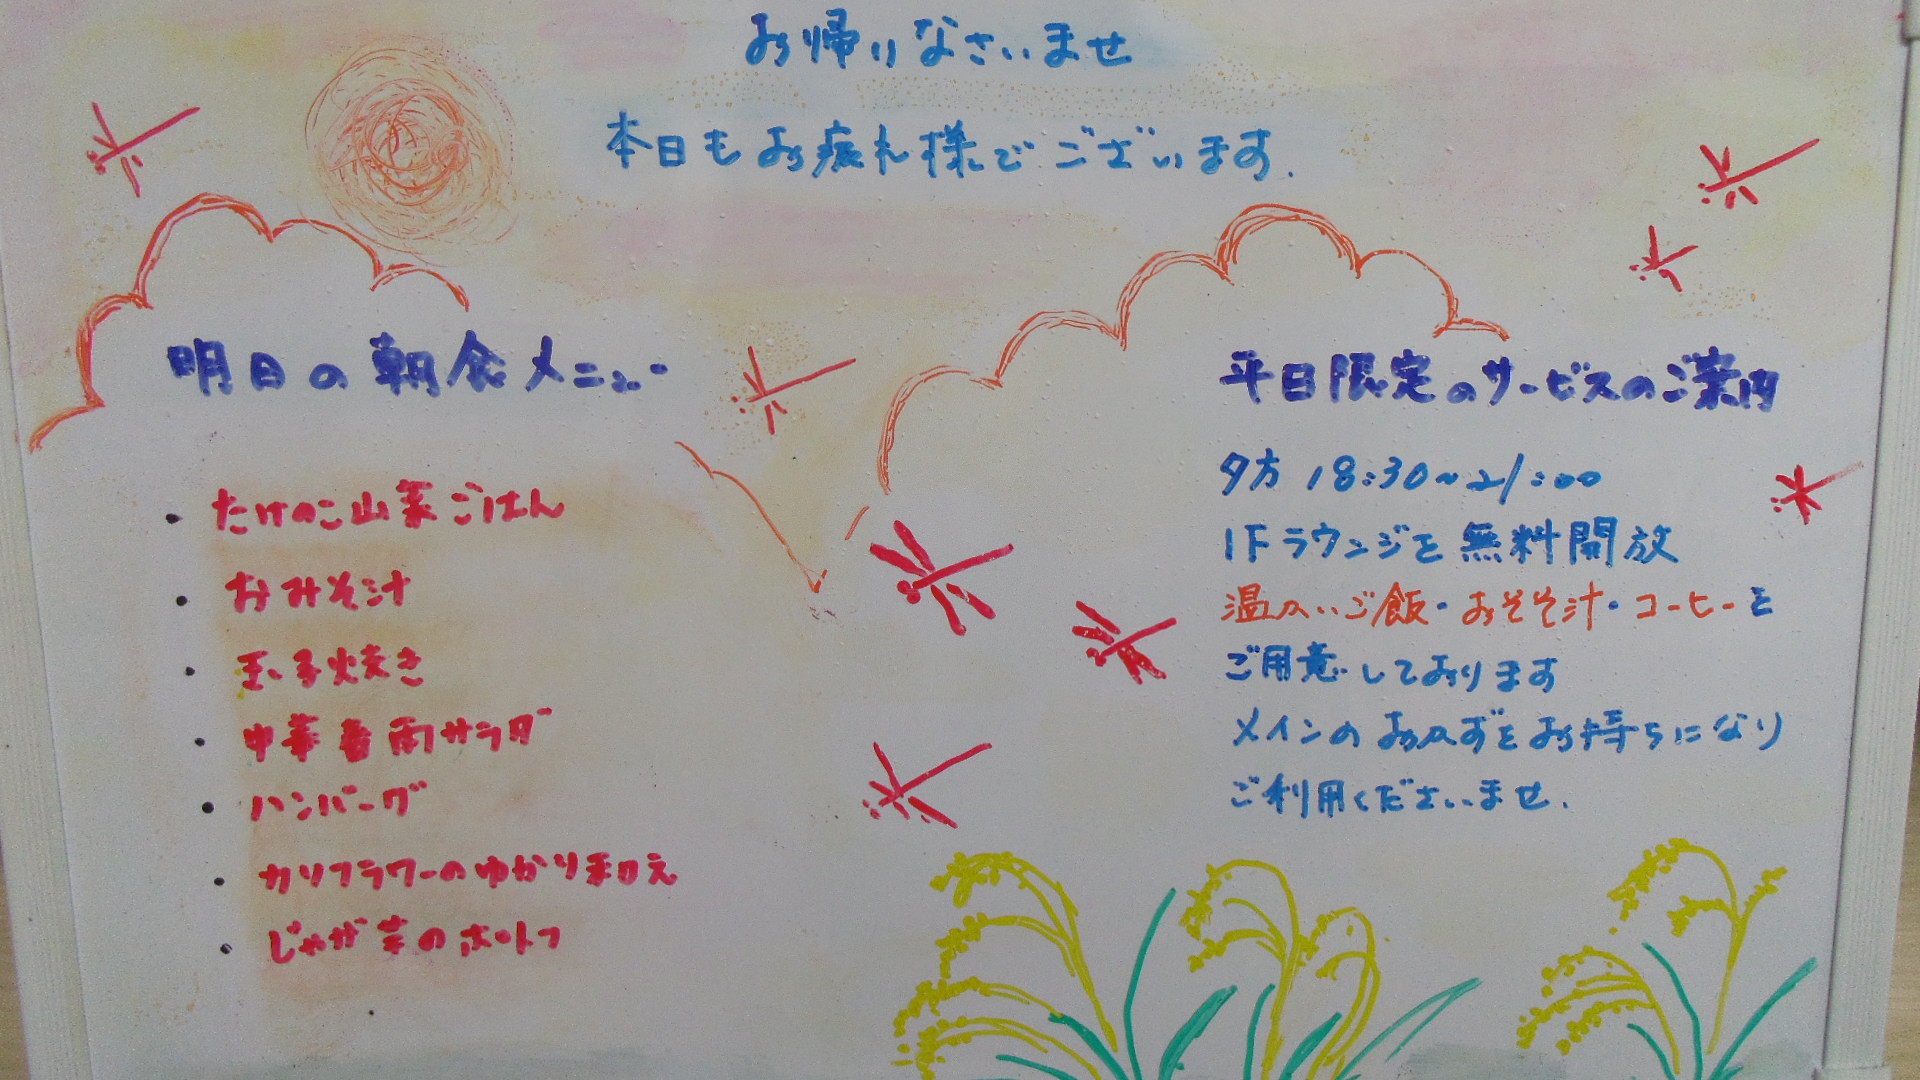 お帰りなさいませ
本日もお疲れ様でございます.
明日の朝食メニュー
・たけのこ山菜ごはん
・おみそ汁
・玉子焼き
・中華春雨サラダ
・ハンバーグ
・カリフラワーのゆかり和え
・じゃが芋のポトフ
平日限定のサービスのご案内
夕方 18:30~21:00
1Fラウンジを無料開放
温かいご飯・おそそ汁・コーヒーを
ご用意しております
メインのおかずをお持ちになり
ご利用くださいませ.